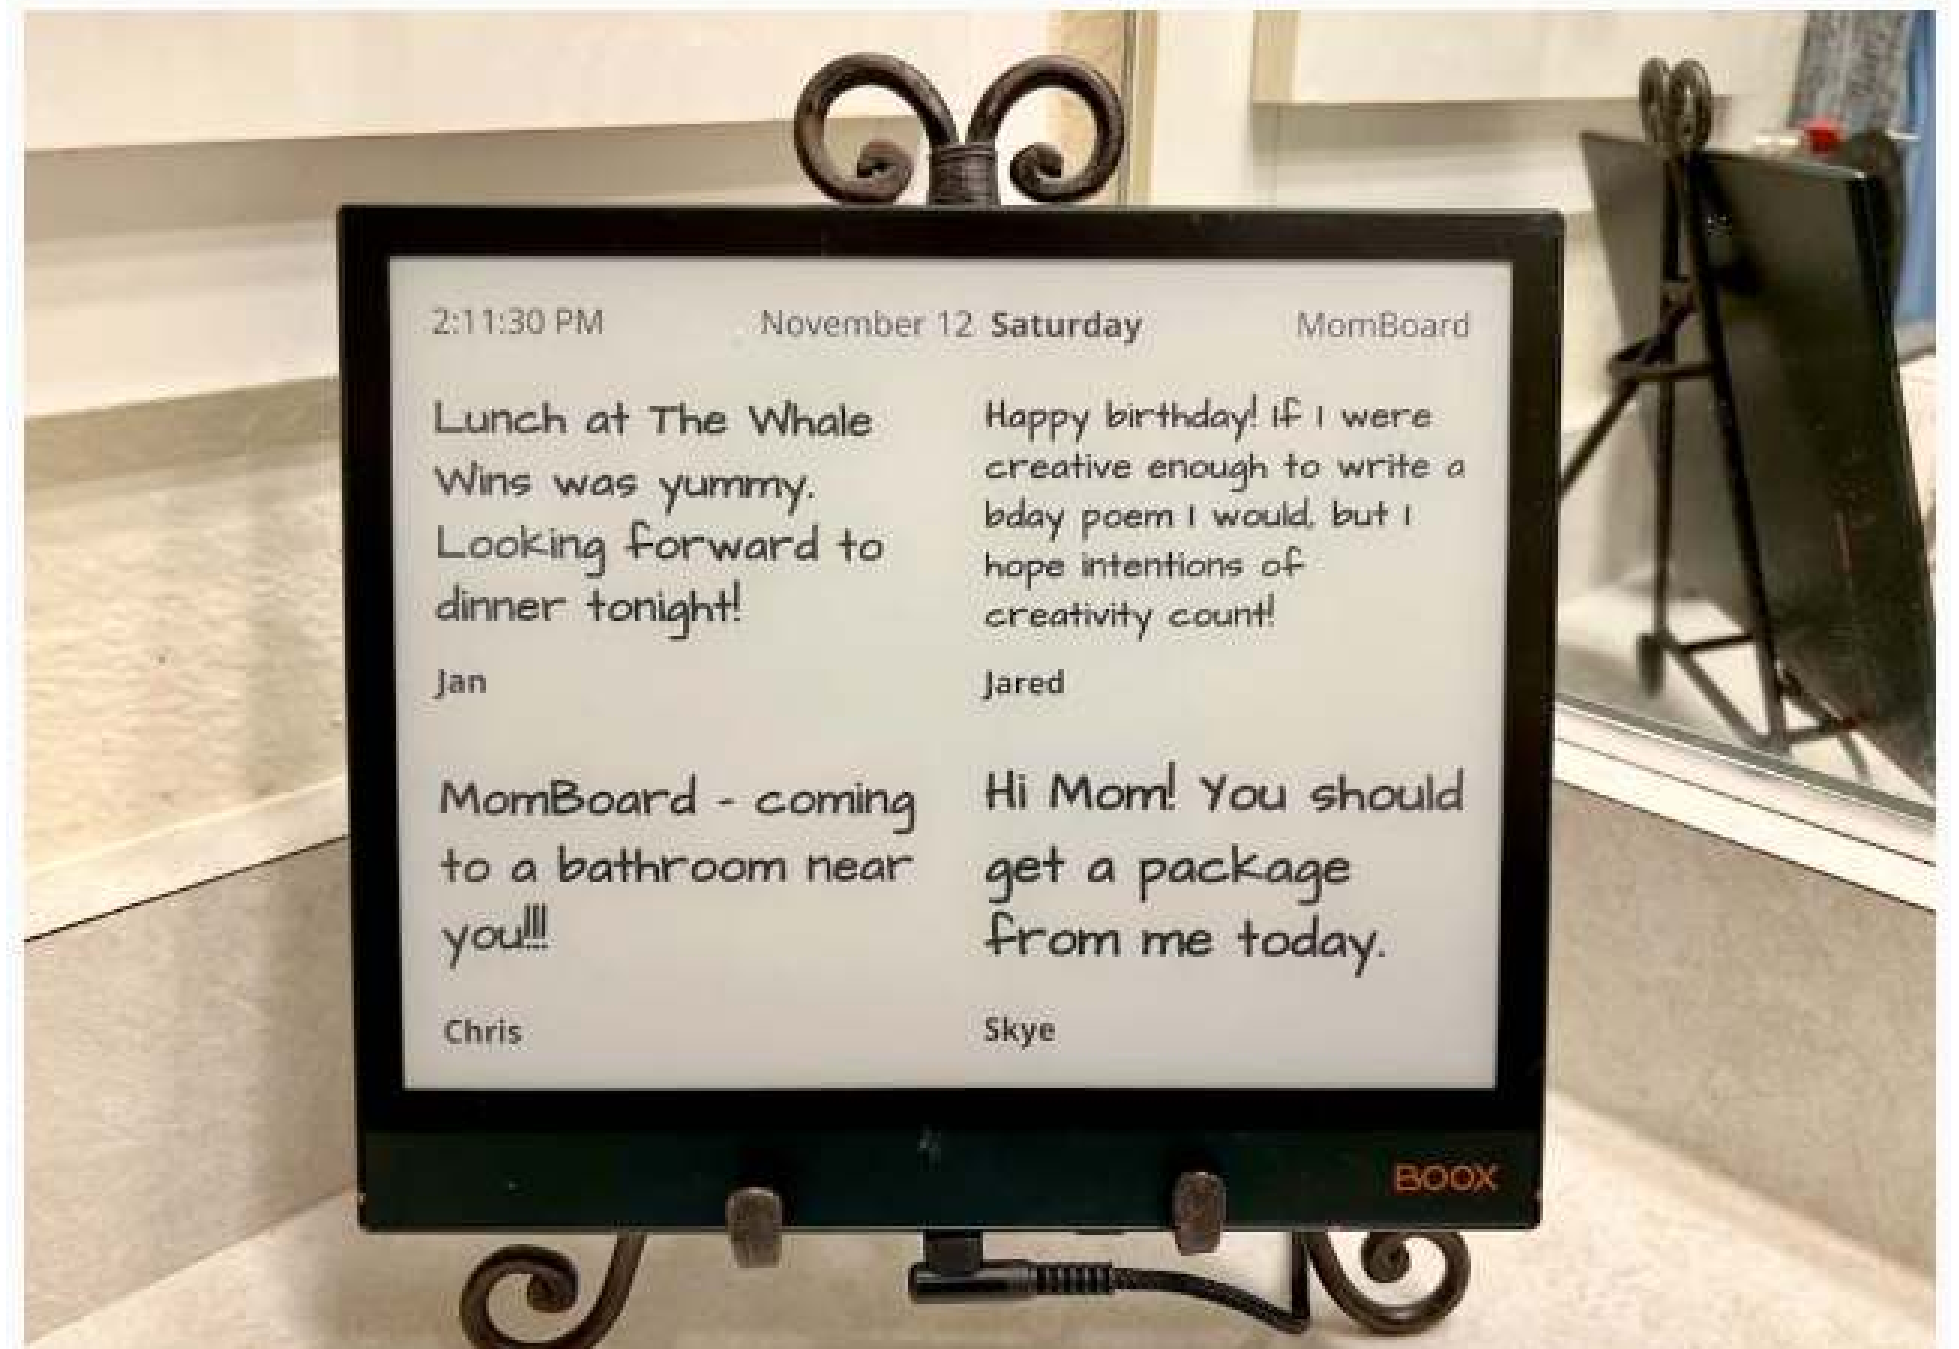 2:11:30 PM
November 12 Saturday
MomBoard
Lunch at The Whale
Wins was yummy.
Looking forward to
dinner tonight!
Jan
Happy birthday! If I were
creative enough to write a
bday poem I would, but I
hope intentions of
creativity count!
Jared
MomBoard - coming
to a bathroom near
you!!!
Chris
Hi Mom! You should
get a package
from me today.
Skye
BOOX